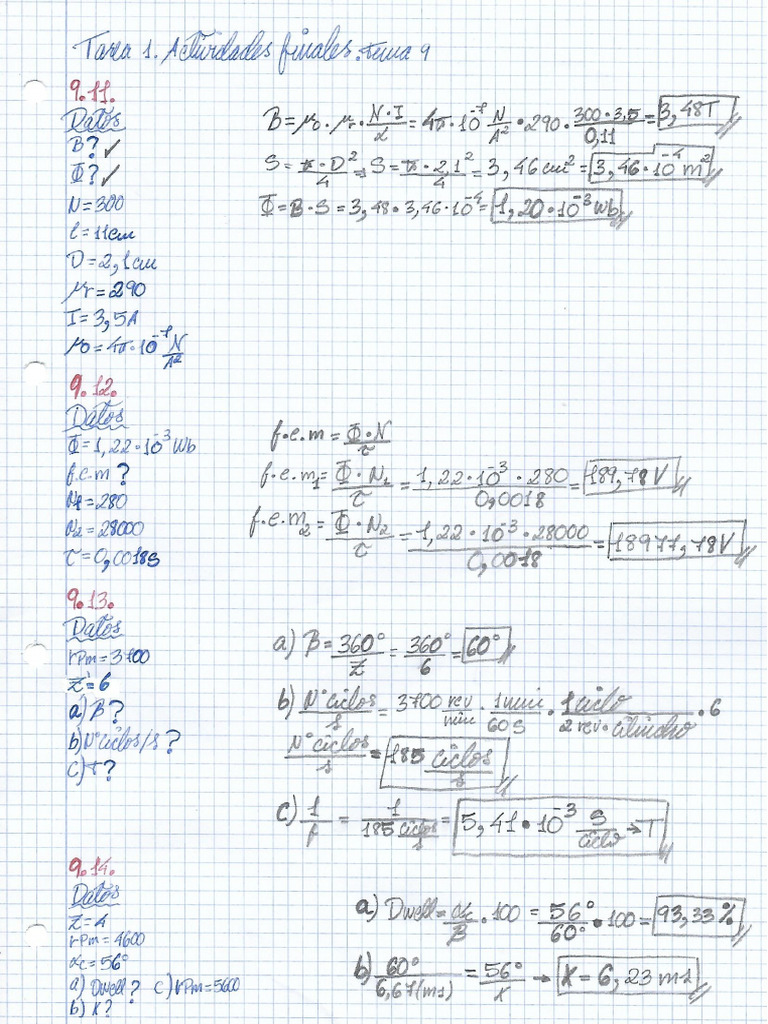 Tarea 1. Actividades finales. Tema 9
9.11.
Datos
B? ✓
Φ? ✓
N=300
l=11cm
D=2,1cm
μr=290
I=3,5A
μ0=4π·10^-7 N/A²
B=μ0·μr·N·I/L=4π·10^-7 N/A²·290·300·3,5/0,11=3,48T
S=π·D²/4= S=π·2,1²/4=3,46cm²=3,46·10^-4 m²
Φ=B·S=3,48·3,46·10^-4=1,20·10^-3 Wb
9.12.
Datos
Φ=1,22·10^-3 Wb
f.e.m?
N1=280
N2=28000
τ=0,0018s
f.e.m=Φ·N/τ
f.e.m1=Φ·N1/τ=1,22·10^-3·280/0,0018=189,78V
f.e.m2=Φ·N2/τ=1,22·10^-3·28000/0,0018=18977,78V
9.13.
Datos
rpm=3700
Z=6
a) β?
b) Nº ciclos/s?
c) T?
a) β=360°/Z=360°/6=60°
b) Nº ciclos/s=3700 rev/min·1min/60s·1ciclo/2rev·cilindro·6
Nº ciclos/s=185 ciclos/s
c) 1/f=1/185 ciclos/s=5,41·10^-3 s/ciclo→T
9.14.
Datos
Z=4
rpm=4600
αc=56°
a) Dwell? c) rpm=5600
b) X?
a) Dwell=αc/β·100=56°/60°·100=93,33%
b) 60°/6,67(ms)=56°/X → X=6,23 ms